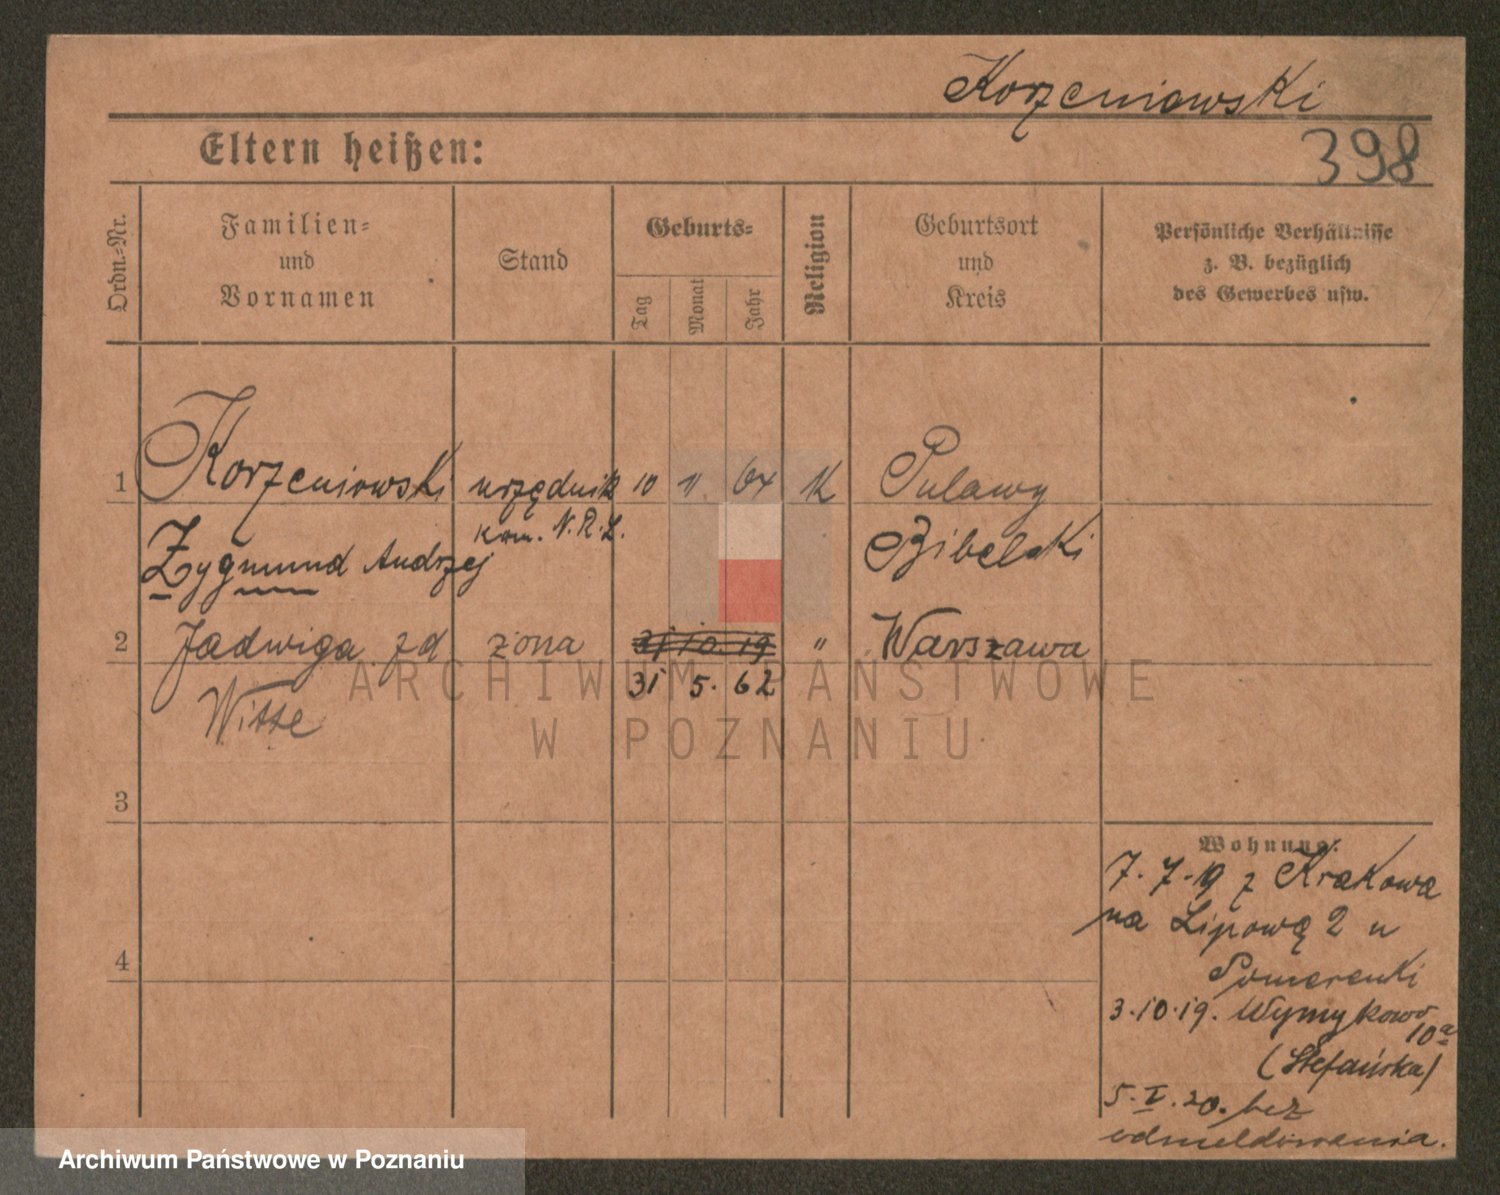 Korzeniowski
398
Eltern heißen:
Ordn.-Nr.
Familien-
und
Vornamen
Stand
Geburts-
Tag
Monat
Jahr
Religion
Geburtsort
und
Kreis
Persönliche Verhältnisse
z. B. bezüglich
des Gewerbes usw.
1 Korzeniowski urzędnik 10 11 64 K Pulawy
kom. N.R.L.
Zygmund Andrzej
2 Jadwiga zd żona 31 10. 19 " Warszawa
Witte 31 5. 62
3
4
Wohnung:
7. 7. 19 z Krakowa
na Lipową 2 u
Pomerenki
3.10.19. Wymykowo
10a
(Stefańska)
5. I. 20. bez
odmeldowania.
ARCHIWUM PAŃSTWOWE
W POZNANIU
Archiwum Państwowe w Poznaniu